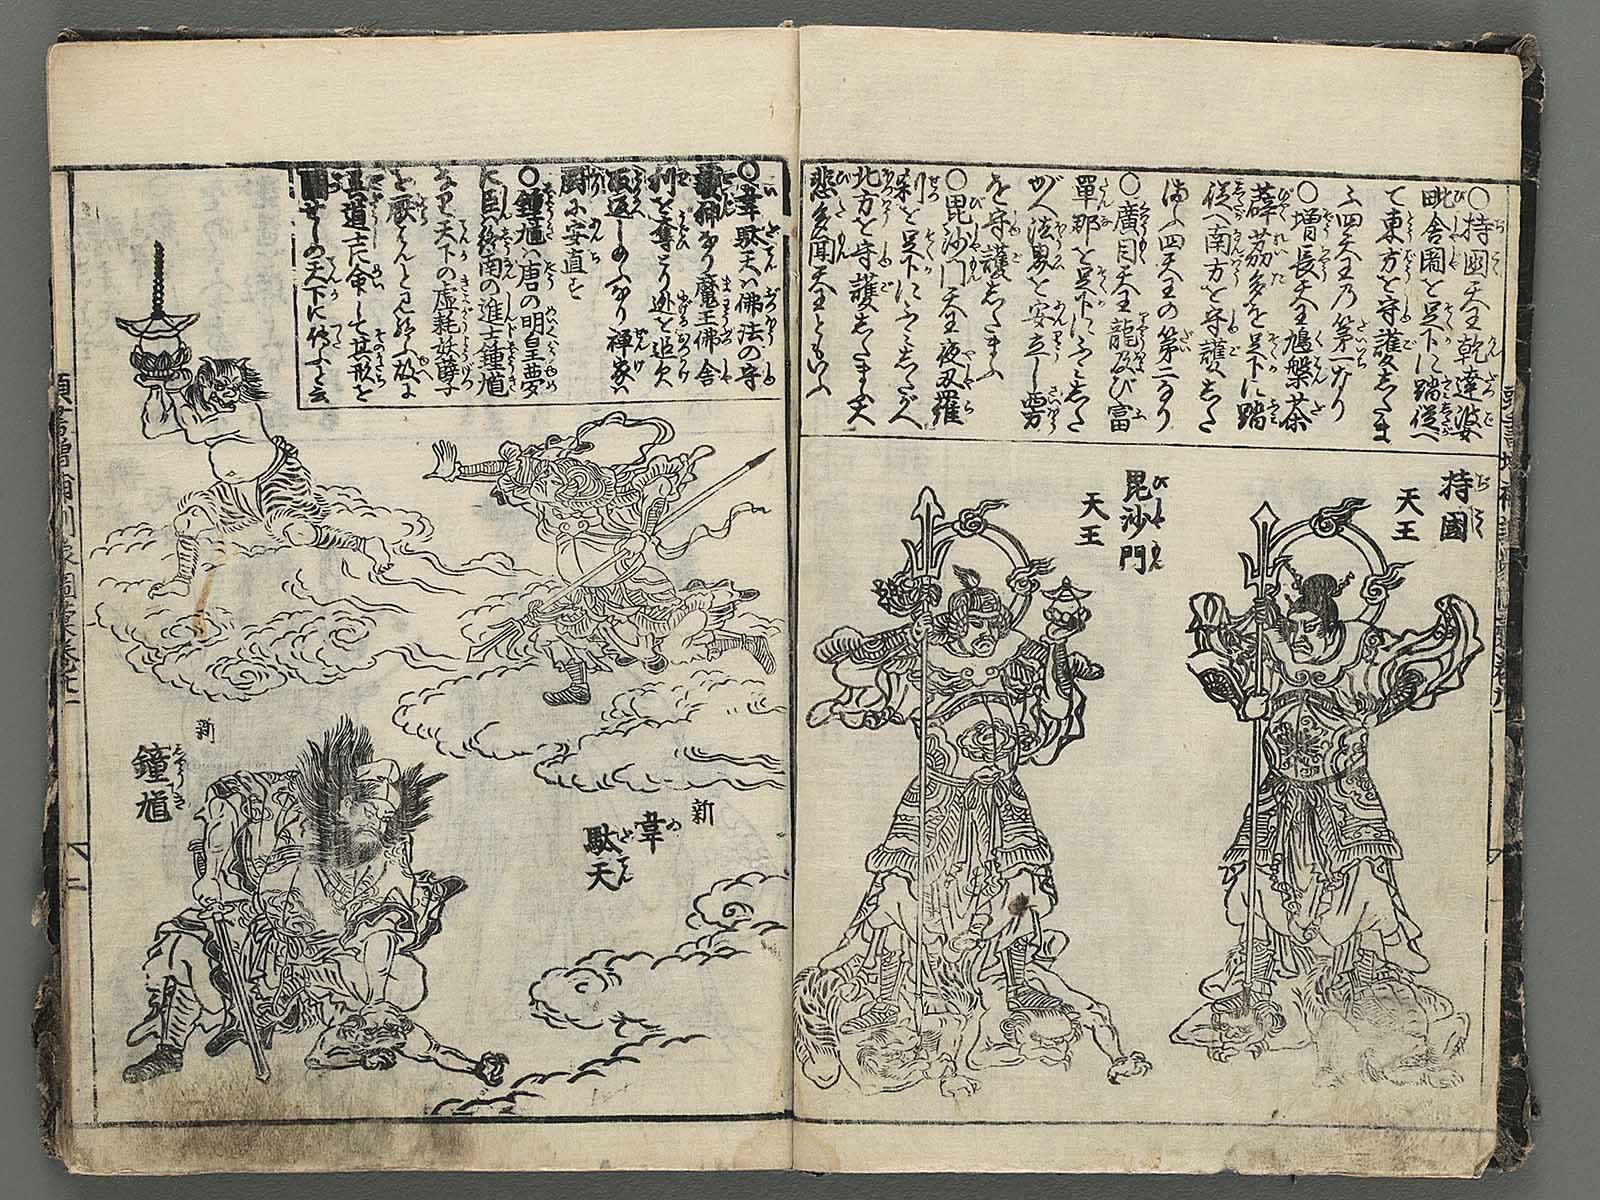 ○持国天王乾達婆
毗舎闍を足下に踏従へ
て東方を守護したま
ふ四天王乃第一なり
○増長天王鳩槃荼
薜茘多を足下に踏
従へ南方を守護した
まふ四天王の第二なり
○廣目天王龍及び富
單那を足下にふみした
がへ法界を安立し西方
を守護したまふ
○毘沙門天王夜叉羅
刹を足下にふみしたがへ
北方を守護したまふ大
悲多聞天王ともいふ
持國
天王
毘沙門
天王
○韋駄天ハ佛法の守
護神なり魔王佛舎
利を奪とり逃を追欠
取返したまふなり禅家ハ
厨に安置す
○鍾馗ハ唐の明皇夢
に臣終南の進士鍾馗
なり天下の虚耗妖孽
を厭はんと
呉道士に命して其形を
せしめ天下に傳ふと云
新
韋
駄天
新
鐘馗
頭書増補訓蒙圖彙